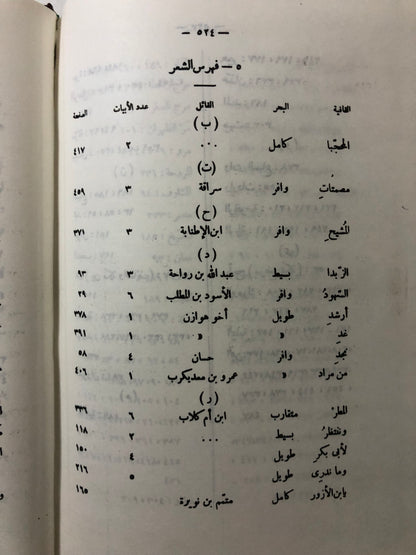 — ٥٢٤ —
٥ – فهرس الشعر
القافية البحر القائل عدد الأبيات الصفحة
(ب)
المحصّبا كامل ... ٢ ٤١٧
(ت)
مصمتاتِ وافر سراقة ٣ ٤٥٩
(ح)
المُشيحِ وافر ابن الإطنابة ٣ ٣٧١
(د)
الزّبدا بسيط عبد الله بن رواحة ٣ ٩٣
السّهودُ وافر الأسود بن المطلب ٦ ٢٩
أرشدِ طويل أخو هوازن ١ ٣٧٨
غدِ » » ١ ٣٩١
نجدِ وافر حسان ٤ ٥٨
من مراد » عمرو بن معديكرب ١ ٤٠٦
(ر)
المطرْ متقارب ابن أم كلاب ٦
وننتظرُ بسيط ... ٢ ١١٨
لأبي بكرِ طويل ٤ ١٥٠
وما ندرى طويل ٥ ٢١٦
يابن الأزور كامل متمّم بن نويرة ١٦٥